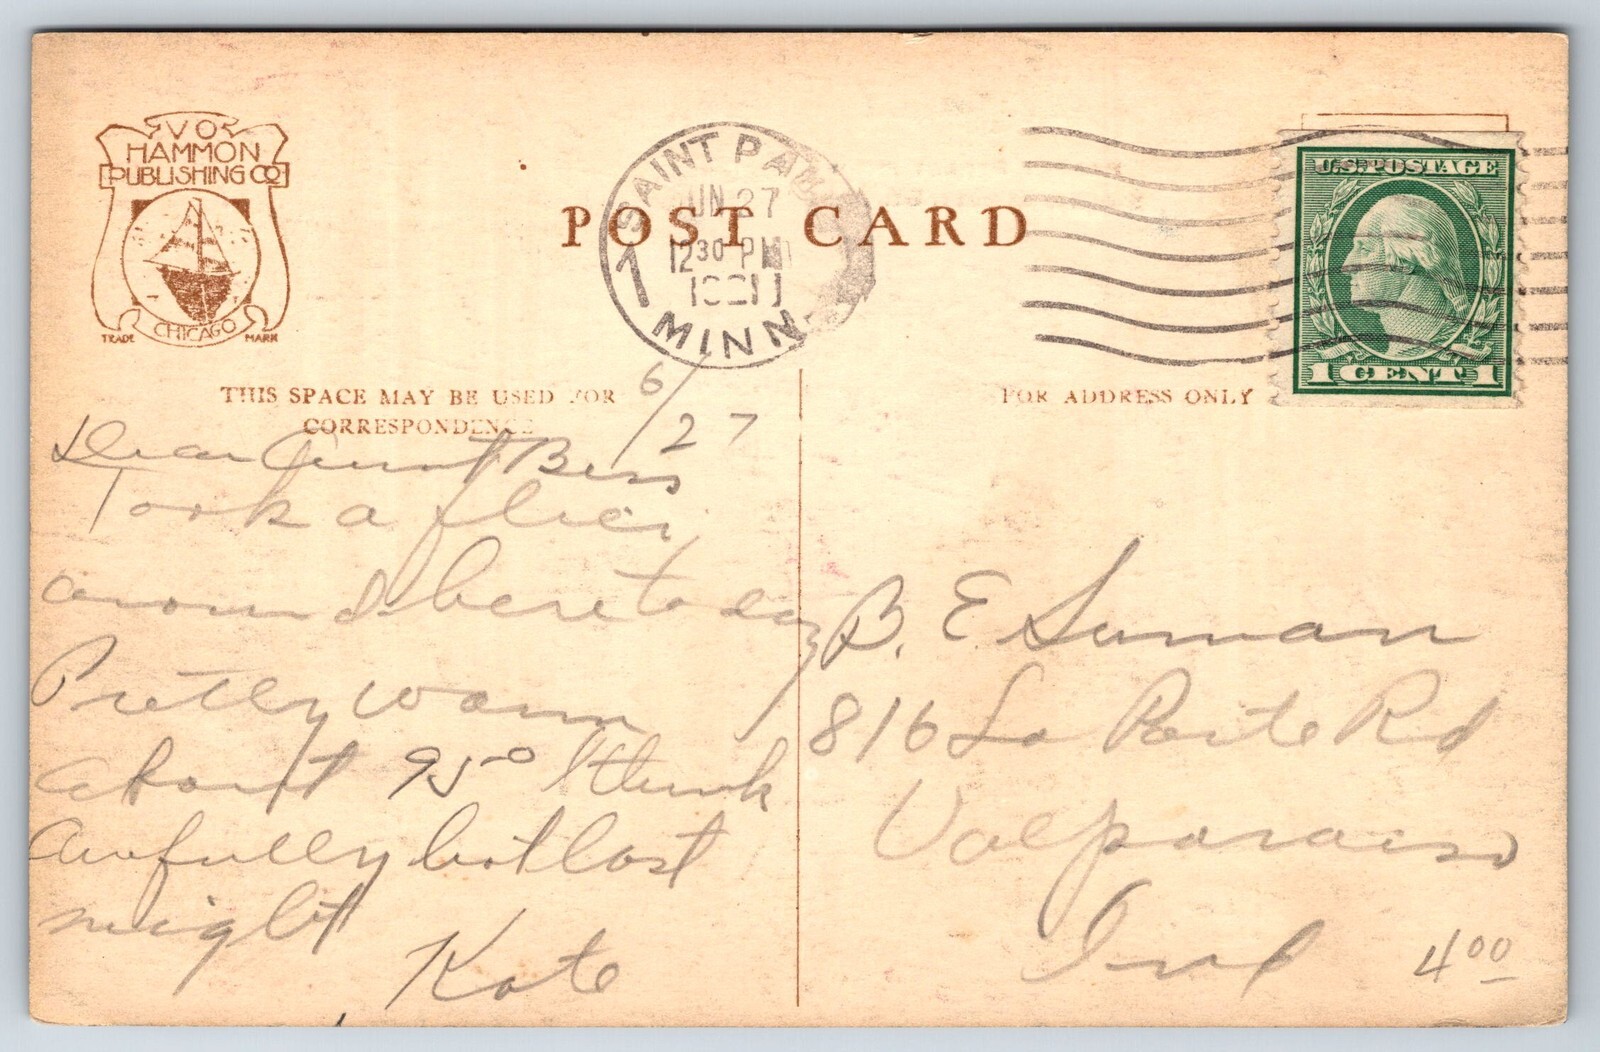 V O
HAMMON
PUBLISHING CO
CHICAGO
TRADE MARK
SAINT PAUL
JUN 27
12 30 PM
1921
MINN.
1
POST CARD
U.S. POSTAGE
1 CENT 1
THIS SPACE MAY BE USED FOR
CORRESPONDENCE
FOR ADDRESS ONLY
6/27
Dear Aunt Bess
Took a
around here to day
Pretty warm
about 95° I think
Awfully hot last
night
Kate
B. E Suman
816 La Porte Rd
Valparaiso
Ind
4 00